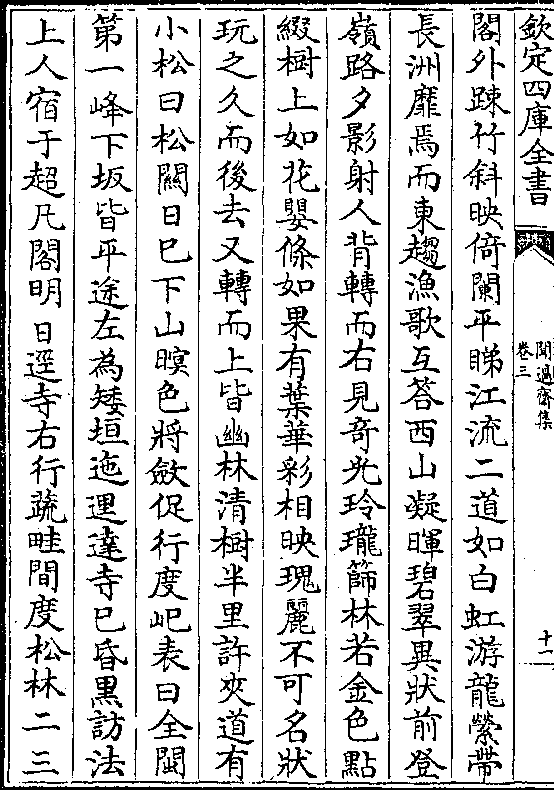 欽定四庫全書
聞過齋集
卷三
十一
閣外踈竹斜映倚闌平睇江流二道如白虹游龍縈帶
長洲靡焉而東趨漁歌互答西山凝暉碧翠異狀前登
嶺路夕影射人背轉而右見奇光玲瓏篩林若金色點
綴樹上如花嬰條如果有葉華彩相映瑰麗不可名狀
玩之久而後去又轉而上皆幽林清樹半里許夾道有
小松曰松關日巳下山暝色將斂促行度屺表曰全閩
第一峰下坂皆平途左為矮垣迤邐達寺巳昏黑訪法
上人宿于超凡閣明日逕寺右行蔬畦間度松林二三